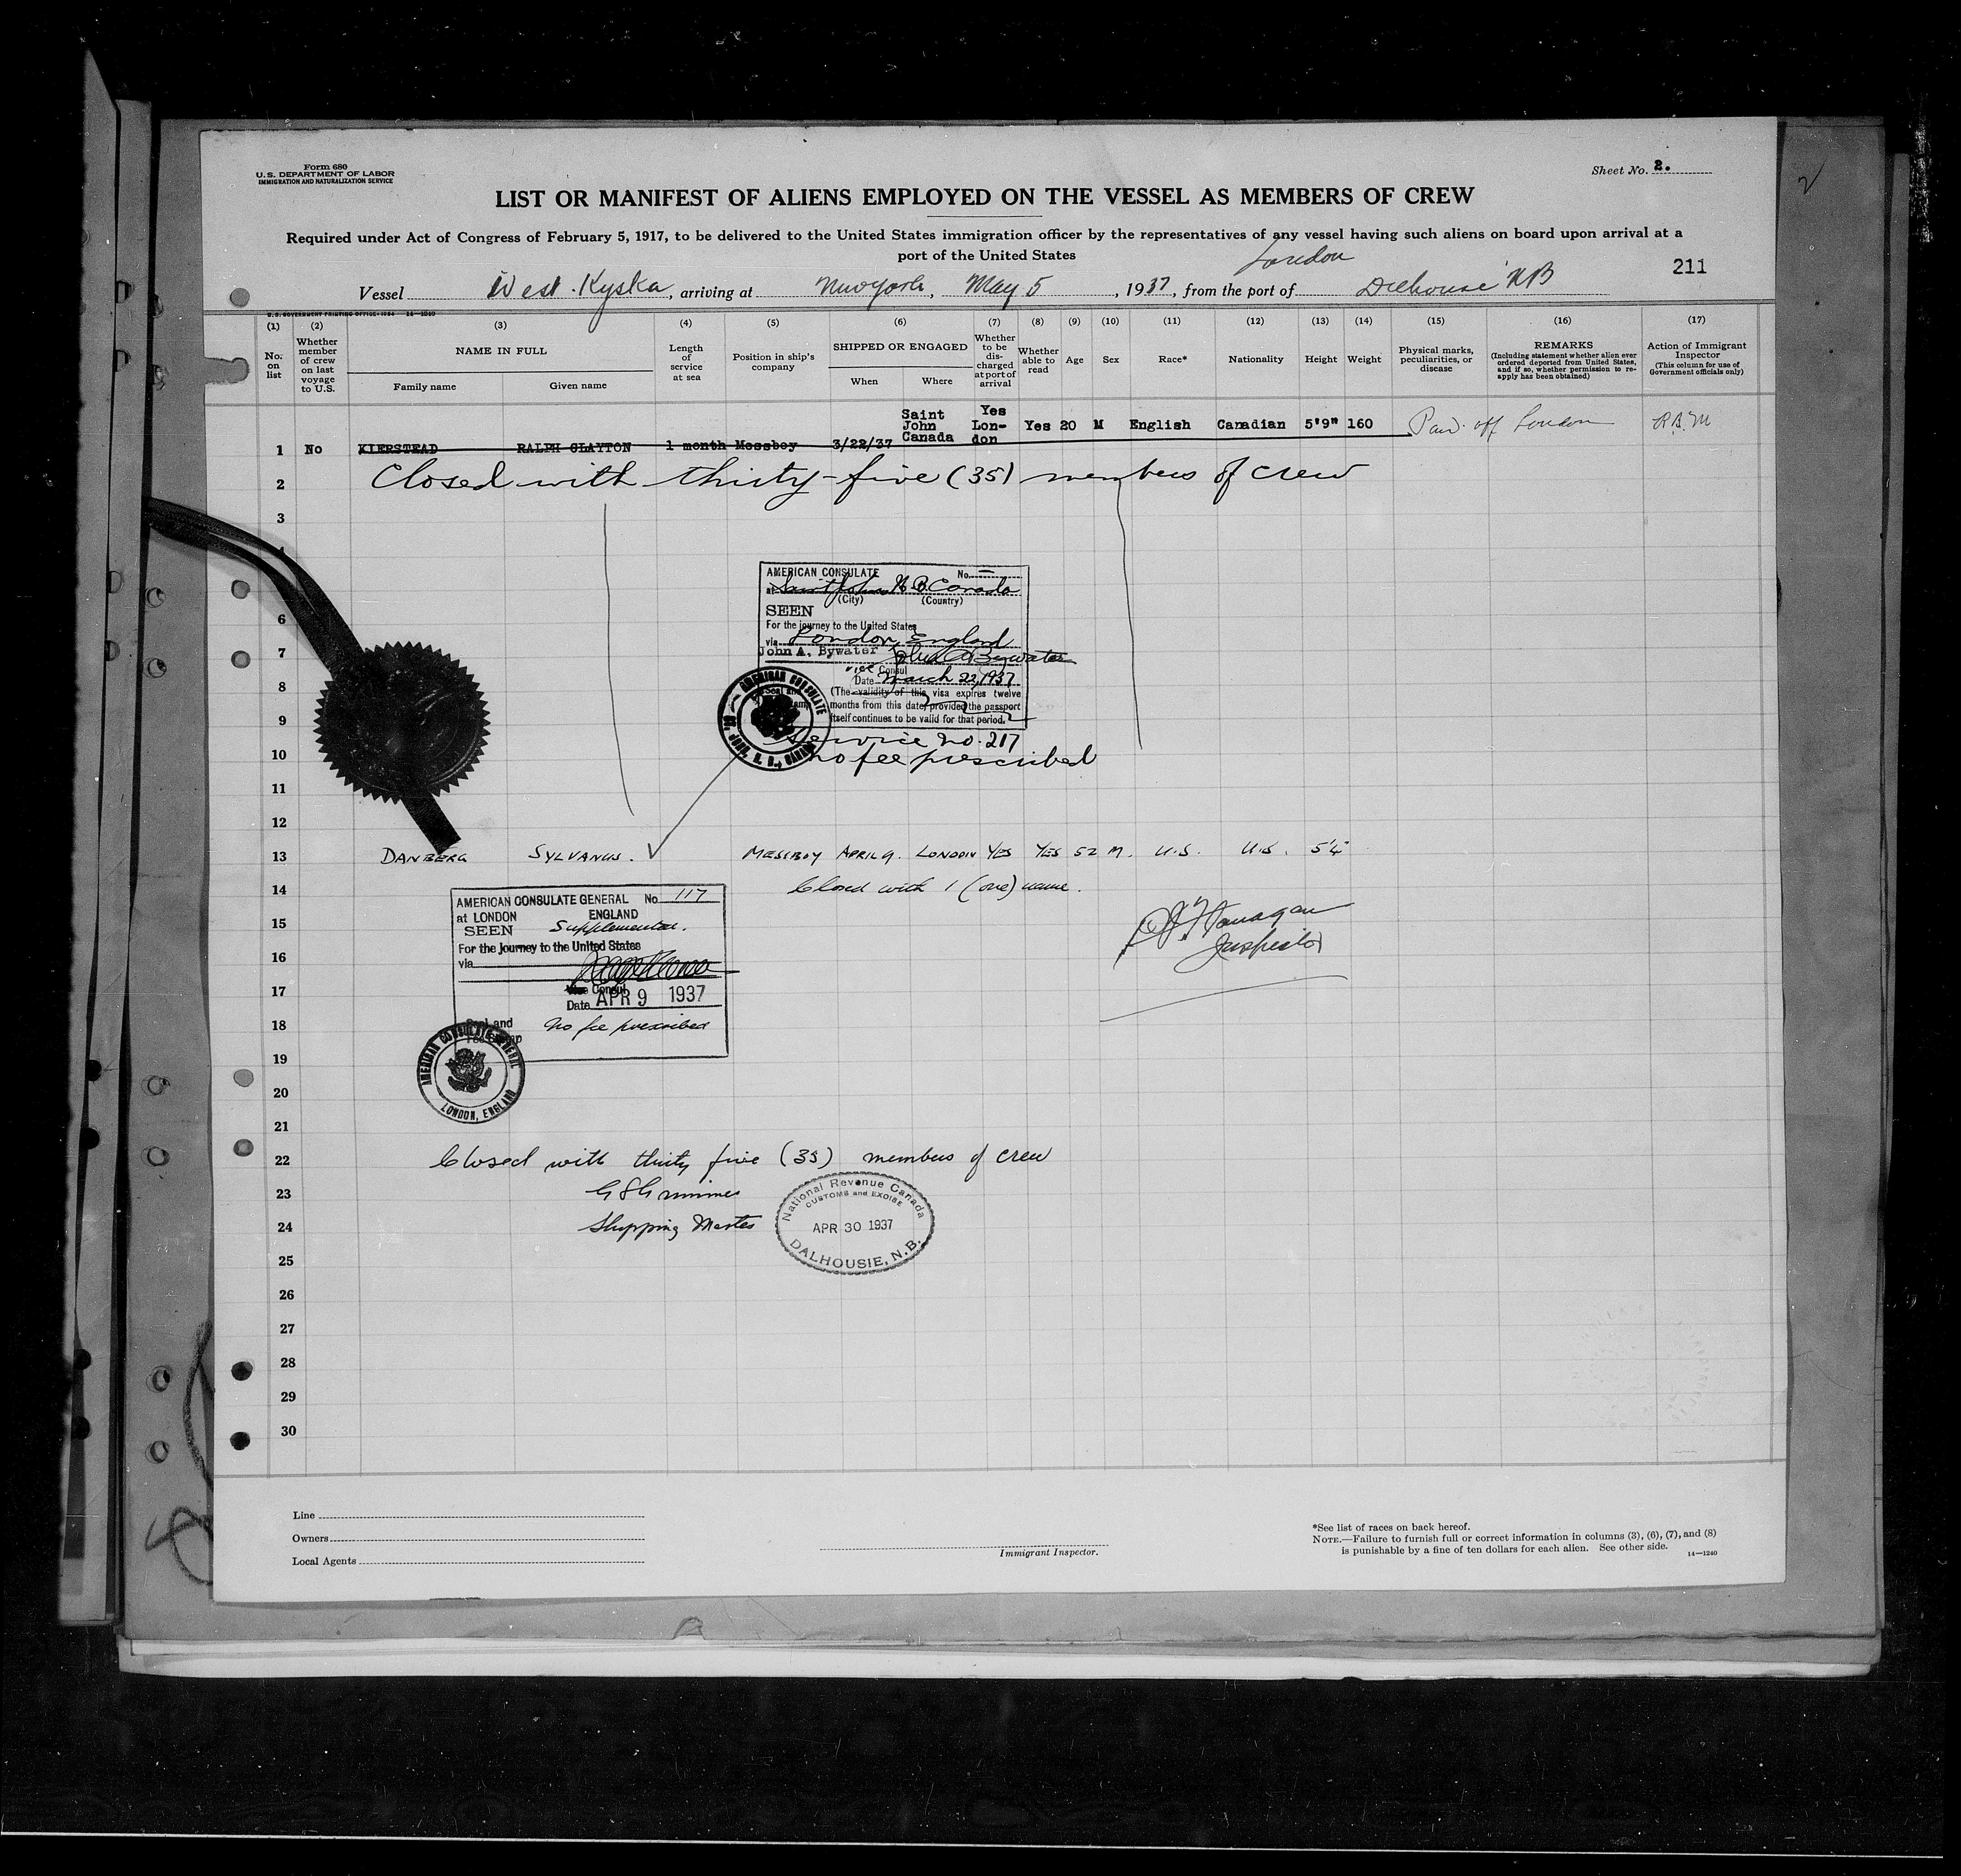 Form 680
U.S. DEPARTMENT OF LABOR
IMMIGRATION AND NATURALIZATION SERVICE
Sheet No. 2.
2
LIST OR MANIFEST OF ALIENS EMPLOYED ON THE VESSEL AS MEMBERS OF CREW
Required under Act of Congress of February 5, 1917, to be delivered to the United States immigration officer by the representatives of any vessel having such aliens on board upon arrival at a
port of the United States
London
211
Vessel West Kyska, arriving at New York, May 5, 1937, from the port of Delhousie NB
U. S. GOVERNMENT PRINTING OFFICE: 1934 14—1240
(1) (2) (3) (4) (5) (6) (7) (8) (9) (10) (11) (12) (13) (14) (15) (16) (17)
No. on list
Whether member of crew on last voyage to U.S.
NAME IN FULL
Family name Given name
Length of service at sea
Position in ship's company
SHIPPED OR ENGAGED
When Where
Whether to be discharged at port of arrival
Whether able to read
Age
Sex
Race*
Nationality
Height
Weight
Physical marks, peculiarities, or disease
REMARKS
(Including statement whether alien ever ordered deported from United States, and if so, whether permission to reapply has been obtained)
Action of Immigrant Inspector
(This column for use of Government officials only)
1 No KIERSTEAD RALPH CLAYTON 1 month Messboy 3/22/37 Saint John Canada Yes Lon-don Yes 20 M English Canadian 5'9" 160 Paid off London R.B.M
2 Closed with thirty-five (35) members of crew
3
4
AMERICAN CONSULATE No. —
at Saint John N.B. Canada
(City) (Country)
SEEN
6
For the journey to the United States
via London, England
7
John A. Bywater John A. Bywater
vice Consul
8
Date March 22, 1937
(The validity of this visa expires twelve
months from this date, provided the passport
itself continues to be valid for that period.
9
AMERICAN CONSULATE
ST. JOHN, N. B., CANADA
Service no. 217
10 no fee prescribed
11
12
13 DANBERG SYLVANUS. MESSBOY APRIL 9. LONDON YES YES 52 M. U.S. U.S. 5'4"
14 Closed with 1 (one) name.
AMERICAN CONSULATE GENERAL No 117
at LONDON ENGLAND
15
SEEN Supplemental.
Flanagan
Inspector
For the journey to the United States
16 via
17
Vice Consul
Date APR 9 1937
18
Seal and
Fee Stamp
No fee prescribed
19
AMERICAN CONSULATE GENERAL
LONDON, ENGLAND
20
21
22 Closed with thirty five (35) members of crew
23
24 Shipping Master
National Revenue Canada
CUSTOMS and EXCISE
APR 30 1937
DALHOUSIE, N.B.
25
26
27
28
29
30
Line
Owners
Local Agents
Immigrant Inspector.
*See list of races on back hereof.
NOTE.—Failure to furnish full or correct information in columns (3), (6), (7), and (8)
is punishable by a fine of ten dollars for each alien. See other side.
14—1240